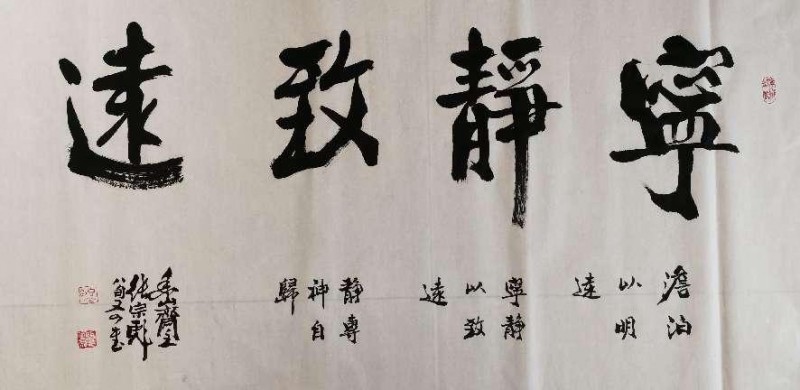 寧靜致遠
澹泊
以明
遠
寧靜
以致
遠
靜專
神自
歸
張宗彪